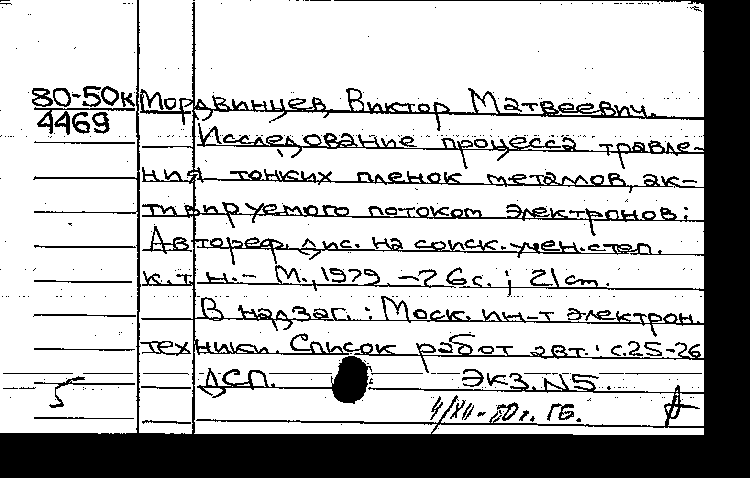 80-50к Мордвинцев, Виктор Матвеевич.
4469
Исследование процесса травле-
ния тонких пленок металлов, ак-
тивируемого потоком электронов:
Автореф. дис. на соиск. учен. степ.
к.т.н. - М., 1979. - 26 с. ; 21 cm.
В надзаг.: Моск. ин-т электрон.
техники. Список работ авт.: с. 25-26
ДСП. ЭКЗ. N5.
5
4/XII-80г. ГБ.